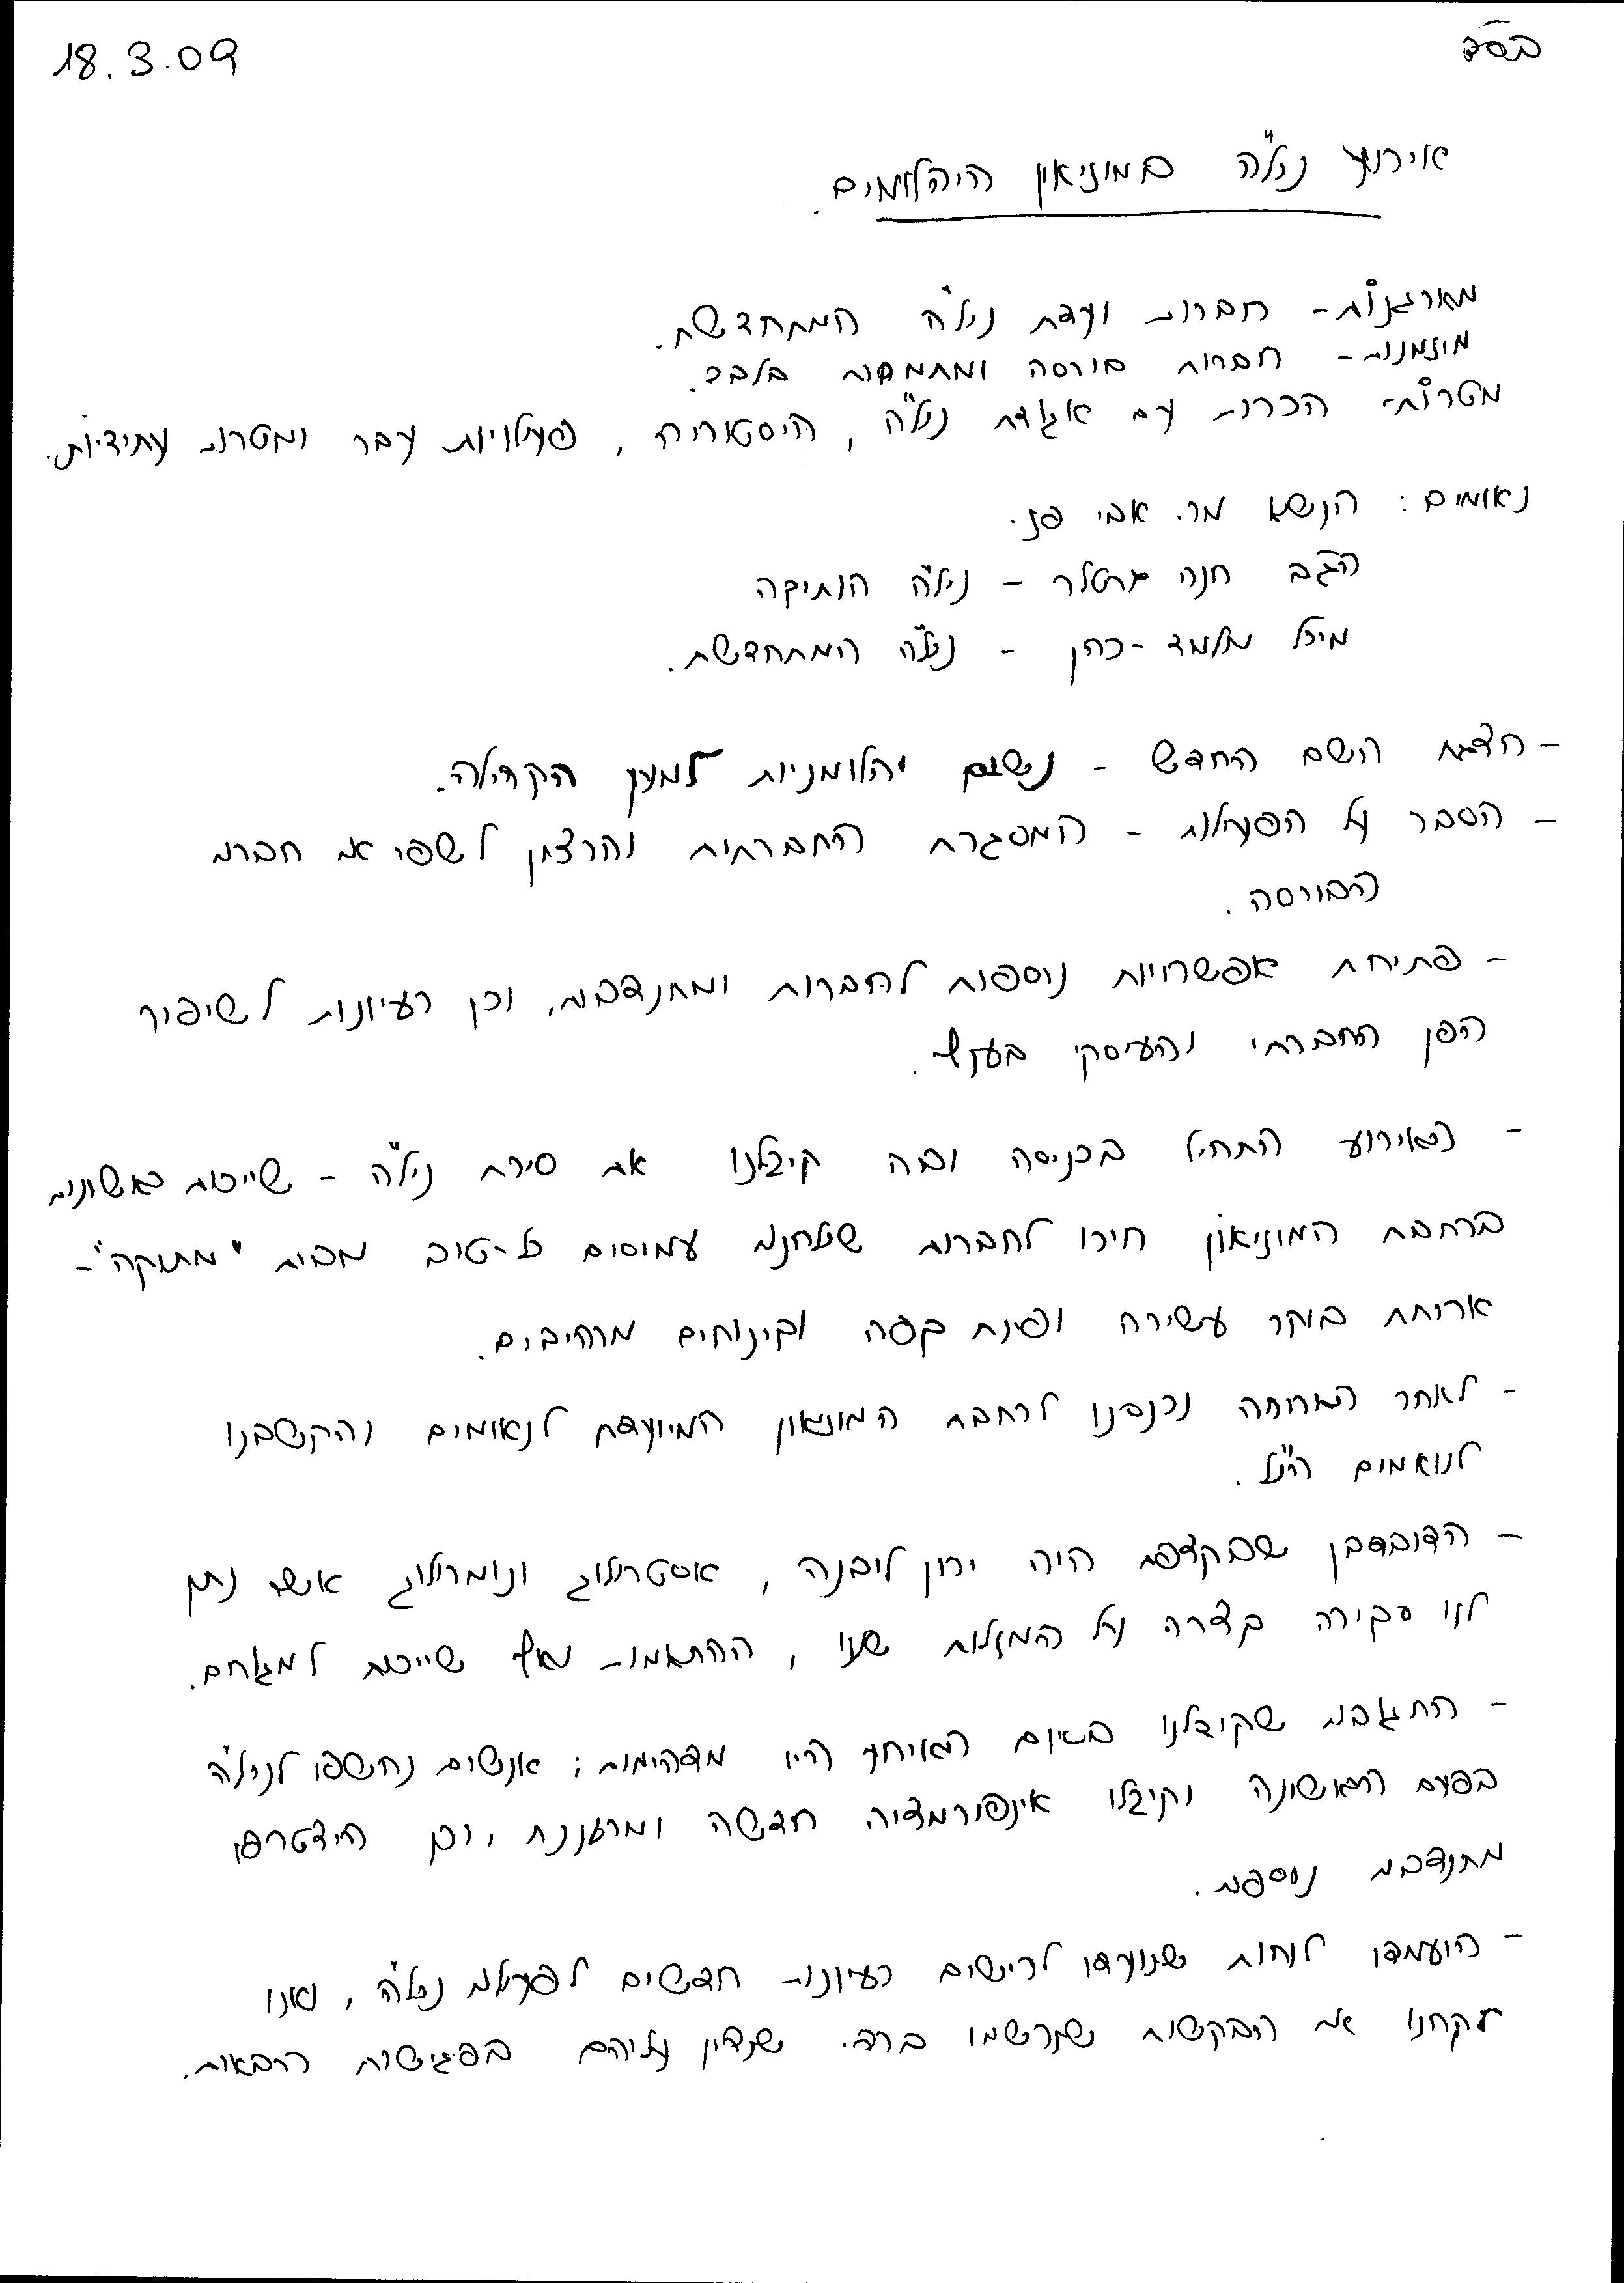 בס"ד
18.3.09
אירוע ניל"ה במוזיאון היהלומים.
מארגנות - חברות ועדת ניל"ה המתחדשת.
מוזמנות - חברות בורסה ומתמחות בלבד.
מטרות - הכרות עם אגודת ניל"ה, היסטוריה, פעילויות עבר ומטרות עתידיות.
נאומים: הנשיא מר. אבי פז.
הגב' חנה גרטלר - ניל"ה הותיקה
מיכל מלמד-כהן - ניל"ה המתחדשת.
- הצגת השם החדש - נשים יהלומניות למען הקהילה.
- הסבר על הפעילות - המסגרת החברתית והרצון לשפר את חברות
הבורסה.
- פתיחת אפשרויות נוספות לחברות ומתנדבות, וכן רעיונות לשיפור
הפן החברתי והעיסקי בענף.
- האירוע התחיל בכניסה ובה קיבלנו את סיכת ניל"ה - שייכות ראשונית
ברחבת המוזיאון חיכו לחברות שולחנות עמוסים כל-טוב מבית "מתוקה" -
ארוחת בוקר עשירה ופינת קפה וקינוחים מרהיבים.
- לאחר הארוחה נכנסנו לרחבת המוזיאון המיועדת לנאומים והקשבנו
לנואמים הנ"ל.
- הדובדבן שבקצפת היה ירון ליבנה, אסטרולוג ונומרולוג אשר נתן
לנו סקירה קצרה על המזלות שלנו, ההתאמות ואף שייכות למגזרם.
- התגובות שקיבלנו בתום האירוע היו מדהימות; אנשים נחשפו לניל"ה
בפעם הראשונה וקיבלו אינפורמציה חדשה ומרעננת, וכן הצטרפו
מתנדבות נוספות.
- הועמדו לוחות שנועדו לרישום רעיונות חדשים לפעילות ניל"ה, ואנו
לקחנו את הבקשות שנרשמו בהם. שנדון עליהם בפגישות הבאות.